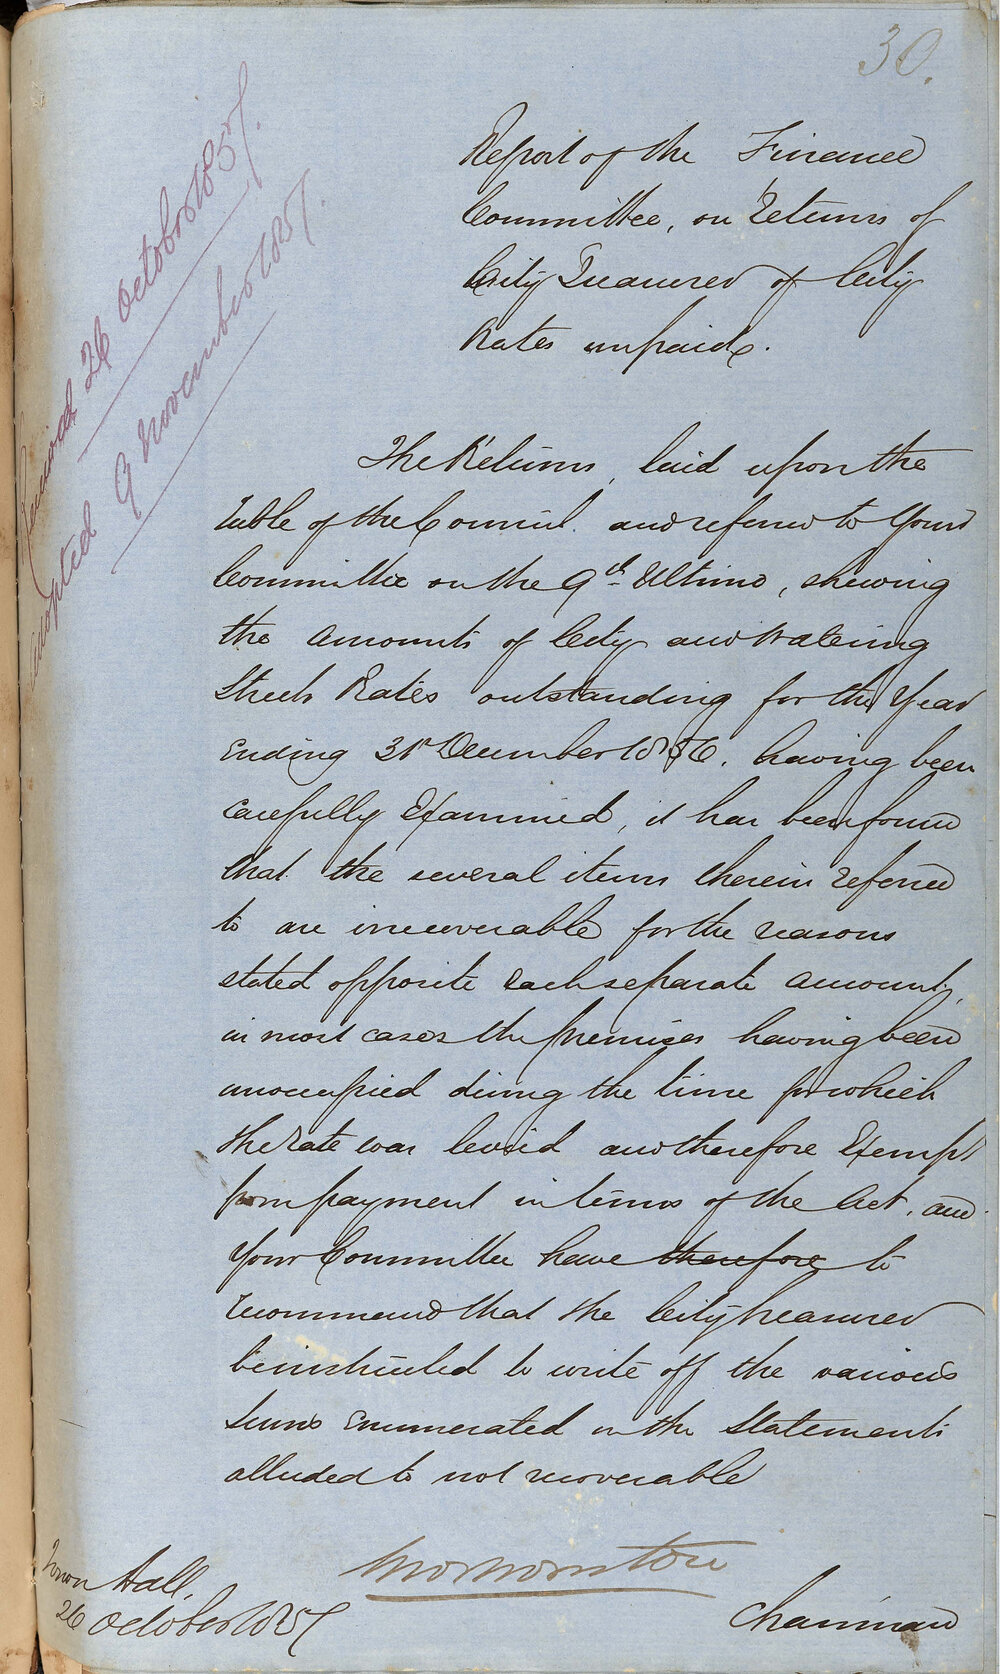 30.
Received 26 October 1857.
Adopted 9 November 1857.
Report of the Finance
Committee, on Returns of
City Treasurer of City
Rates unpaid.
The Returns, laid upon the
Table of the Council and referred to Your
Committee on the 9th Ultimo, shewing
the amounts of City and Watering
Streets Rates outstanding for the Year
ending 31st December 1856, having been
carefully Examined, it has been found
that the several items therein referred
to are irrecoverable for the reasons
stated opposite each separate amount,
in most cases the premises having been
unoccupied during the time for which
the Rate was levied and therefore Exempt
from payment in terms of the Act, and
Your Committee have therefore to
recommend that the City Treasurer
be instructed to write off the various
Sums enumerated in the Statements
alluded to not recoverable
Town Hall,
26 October 1857
Chairman